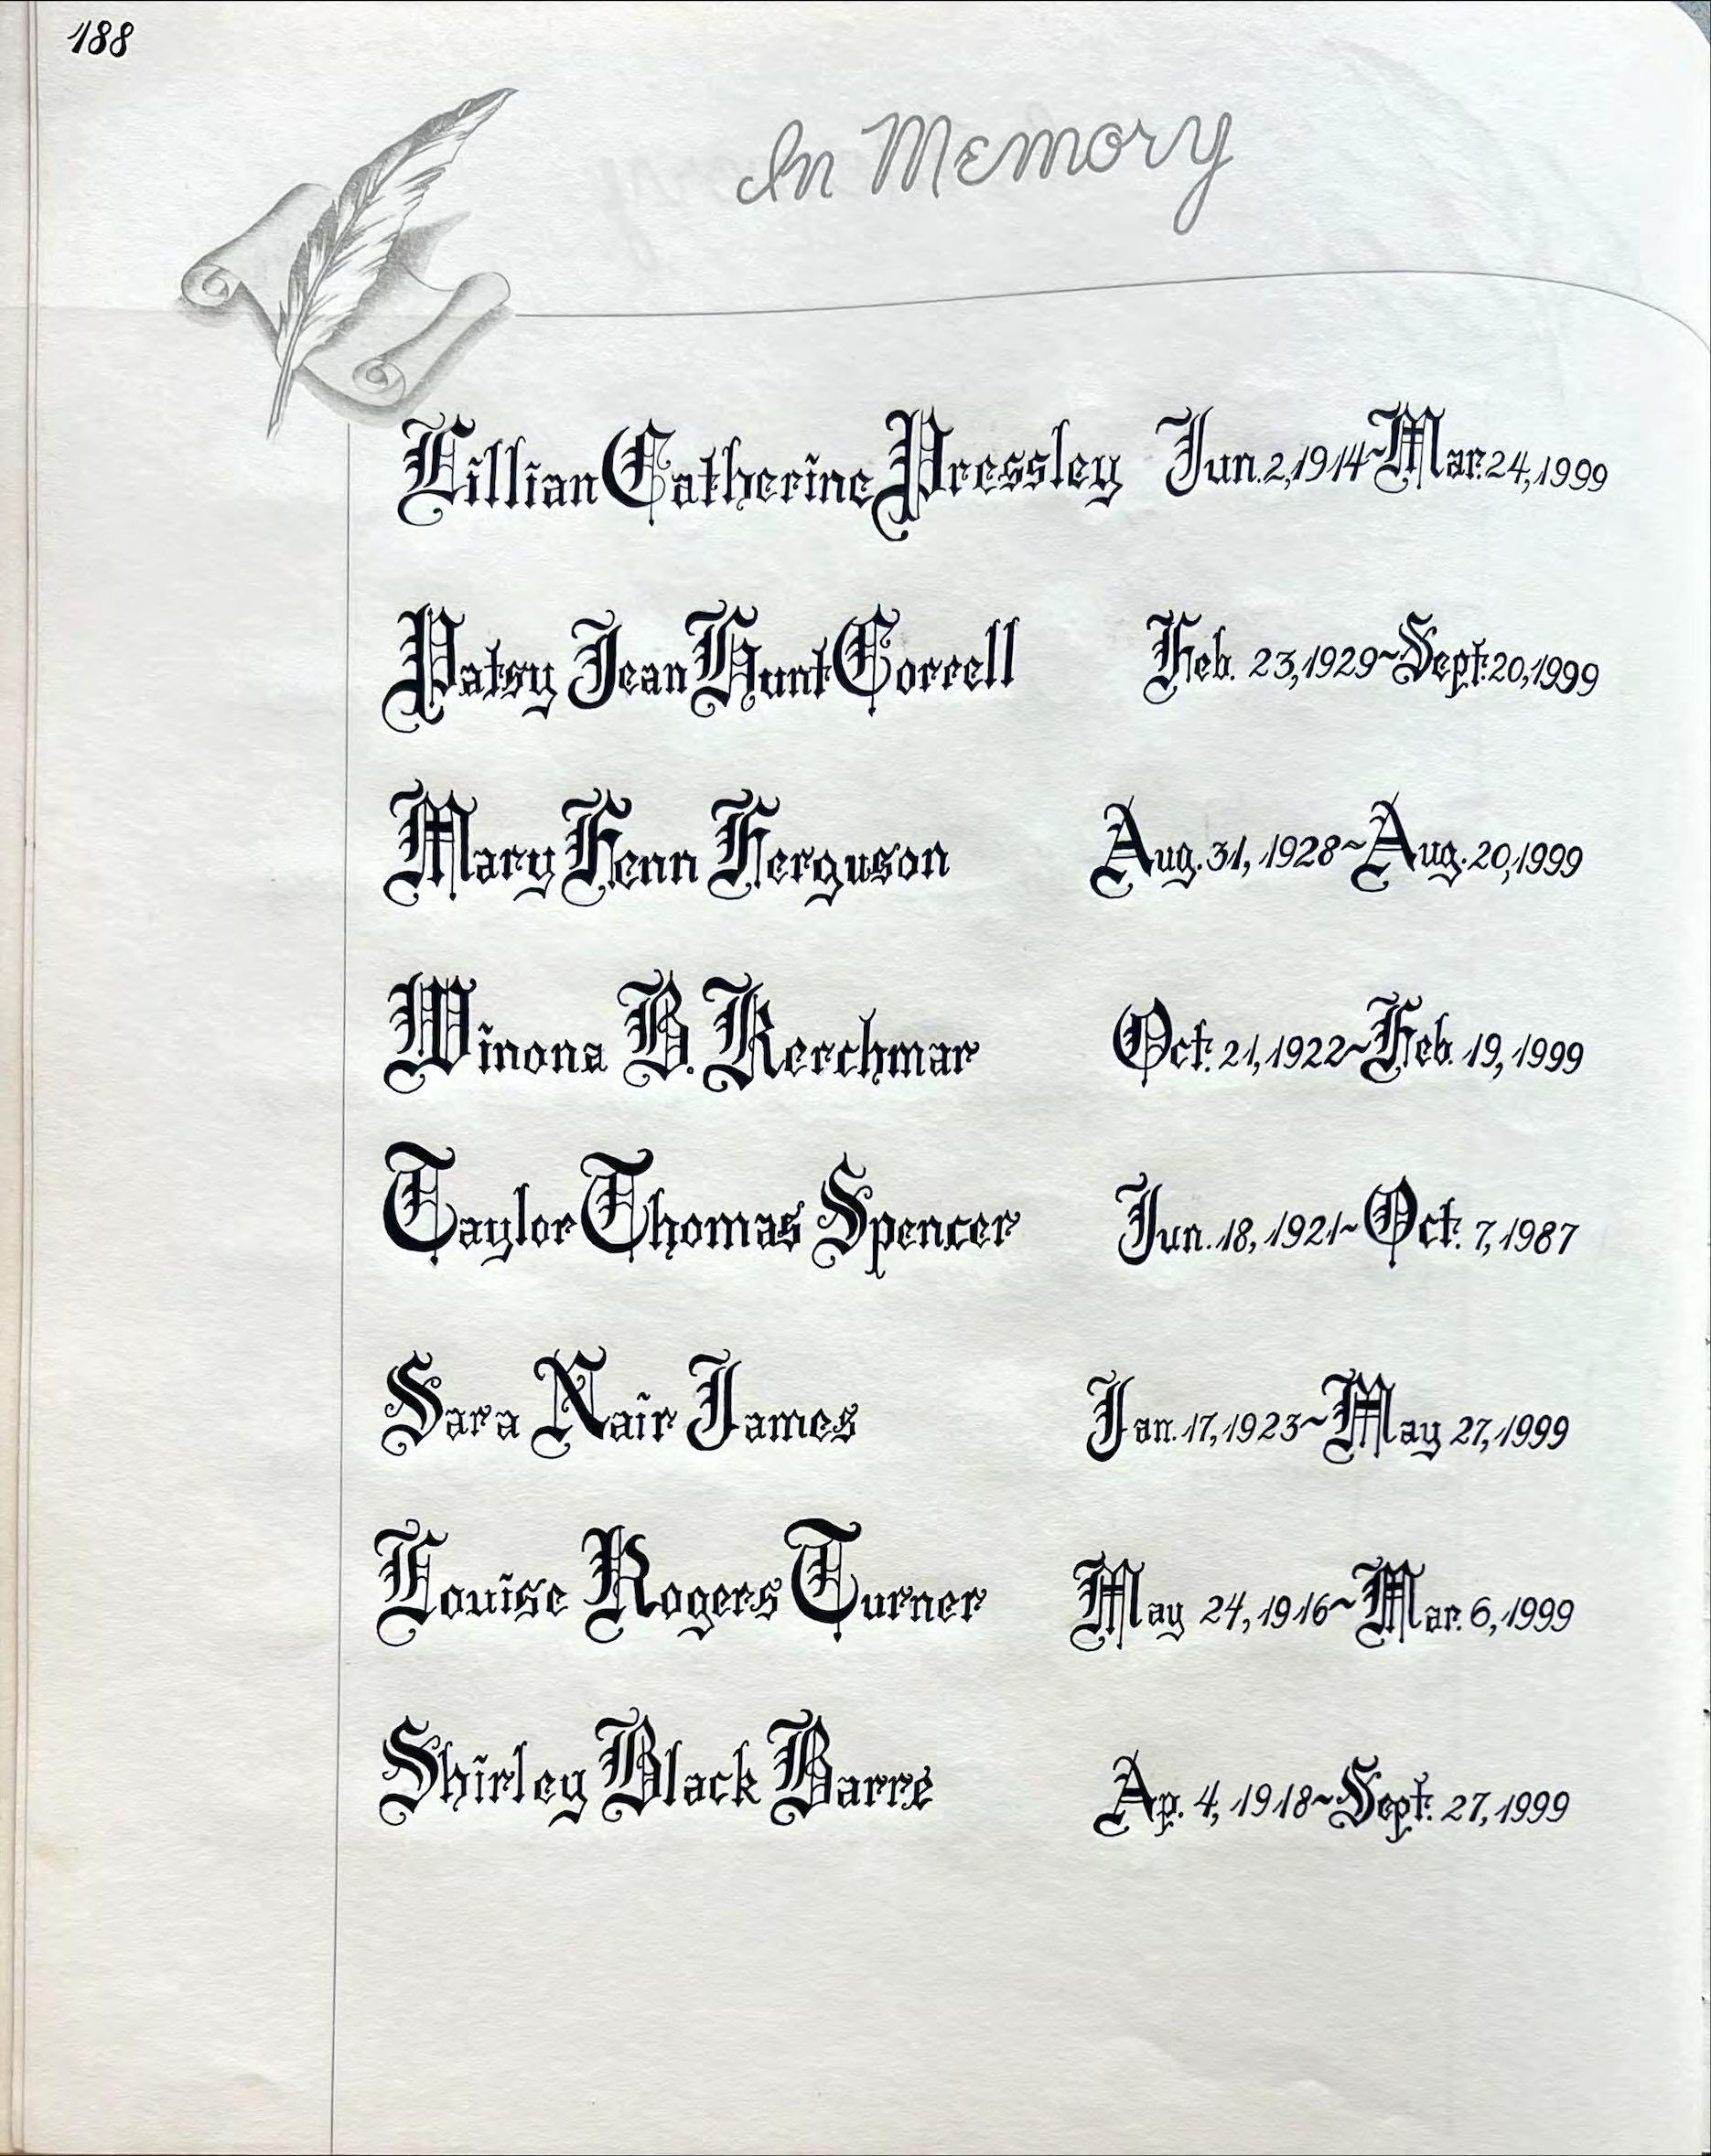 188
In Memory
Lillian Catherine Pressley Jun. 2, 1914~Mar. 24, 1999
Patsy Jean Hunt Correll Feb. 23, 1929~Sept. 20, 1999
Mary Fenn Ferguson Aug. 31, 1928~Aug. 20, 1999
Winona B. Kerchmar Oct. 21, 1922~Feb. 19, 1999
Taylor Thomas Spencer Jun. 18, 1921~Oct. 7, 1987
Sara Nair James Jan. 17, 1923~May 27, 1999
Louise Rogers Turner May 24, 1916~Mar. 6, 1999
Shirley Black Barre Ap. 4, 1918~Sept. 27, 1999